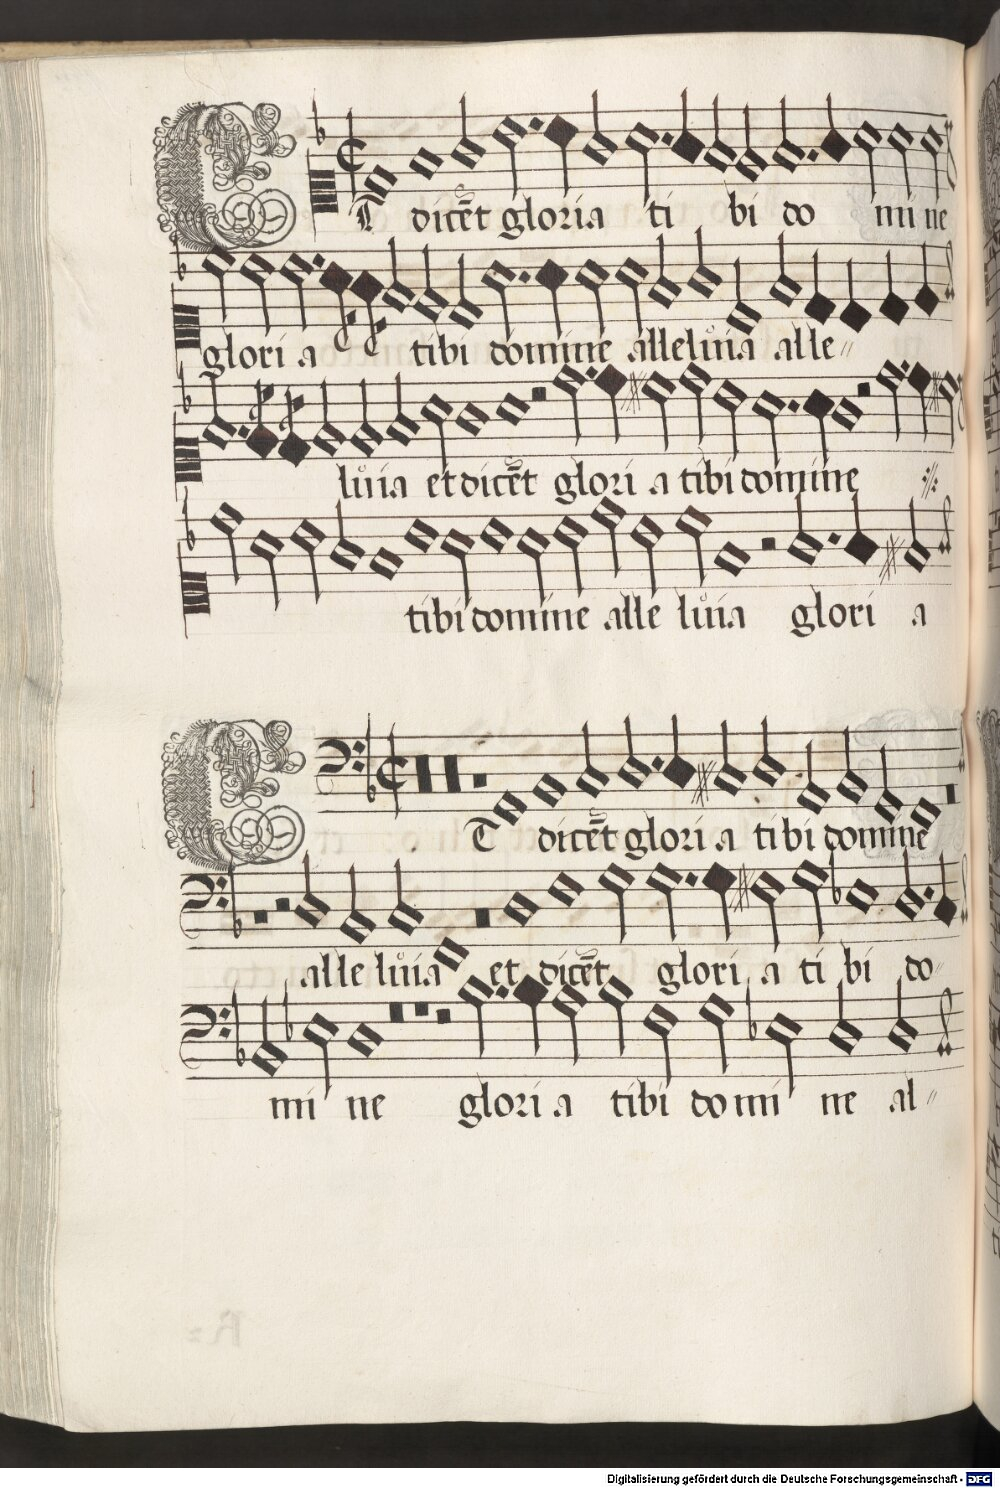 Et dicēt gloria ti bi do mi ne
glori a tibi domine alleluia alle
luia et dicēt glori a tibi domine
tibi domine alle luia glori a
Et dicēt glori a tibi domine
alle luia et dicēt glori a ti bi do
mi ne glori a tibi domi ne al
Digitalisierung gefördert durch die Deutsche Forschungsgemeinschaft - DFG